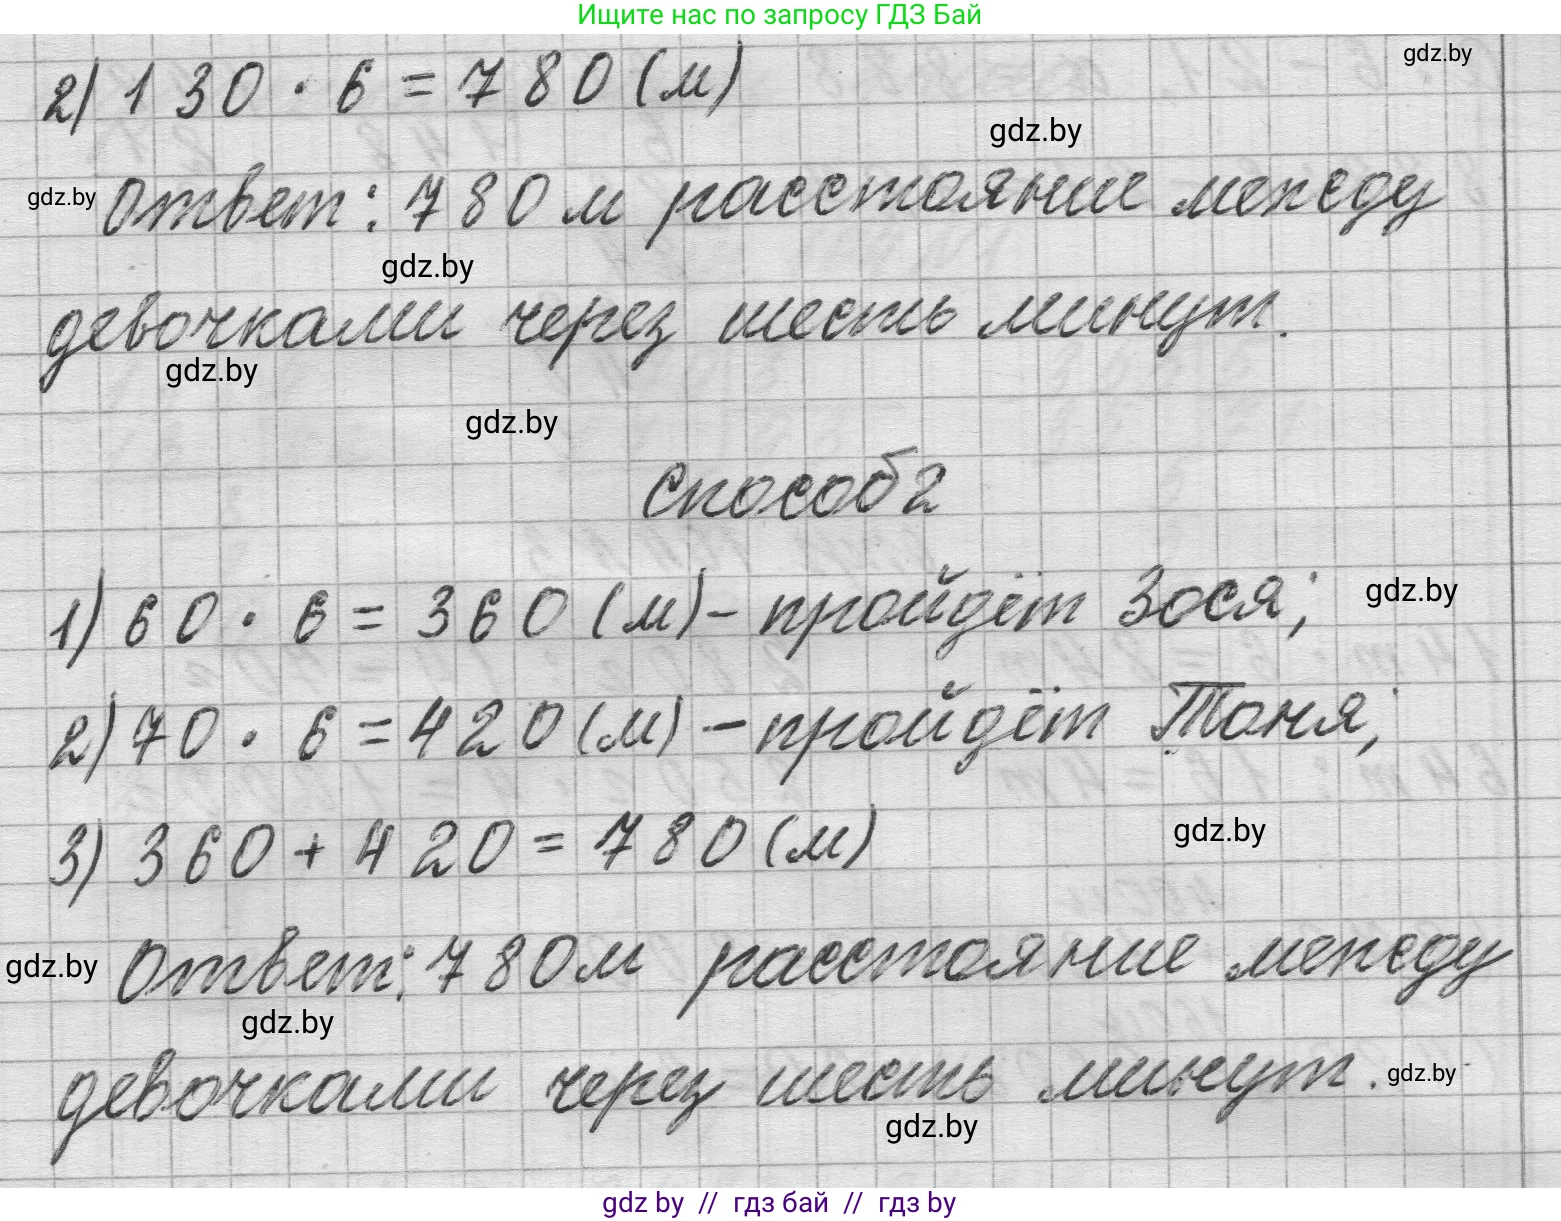 Ищите нас по запросу ГДЗ Бай
gdz.by
2) 130 · 6 = 780 (м)
gdz.by
gdz.by
Ответ: 780 м расстояние между
gdz.by
девочками через шесть минут.
gdz.by
gdz.by
Способ 2
1) 60 · 6 = 360 (м) – пройдёт Зося;
gdz.by
2) 70 · 6 = 420 (м) – пройдёт Таня;
3) 360 + 420 = 780 (м)
gdz.by
gdz.by
Ответ: 780 м расстояние между
gdz.by
девочками через шесть минут.
gdz.by
gdz.by
gdz by // гдз бай // гдз by